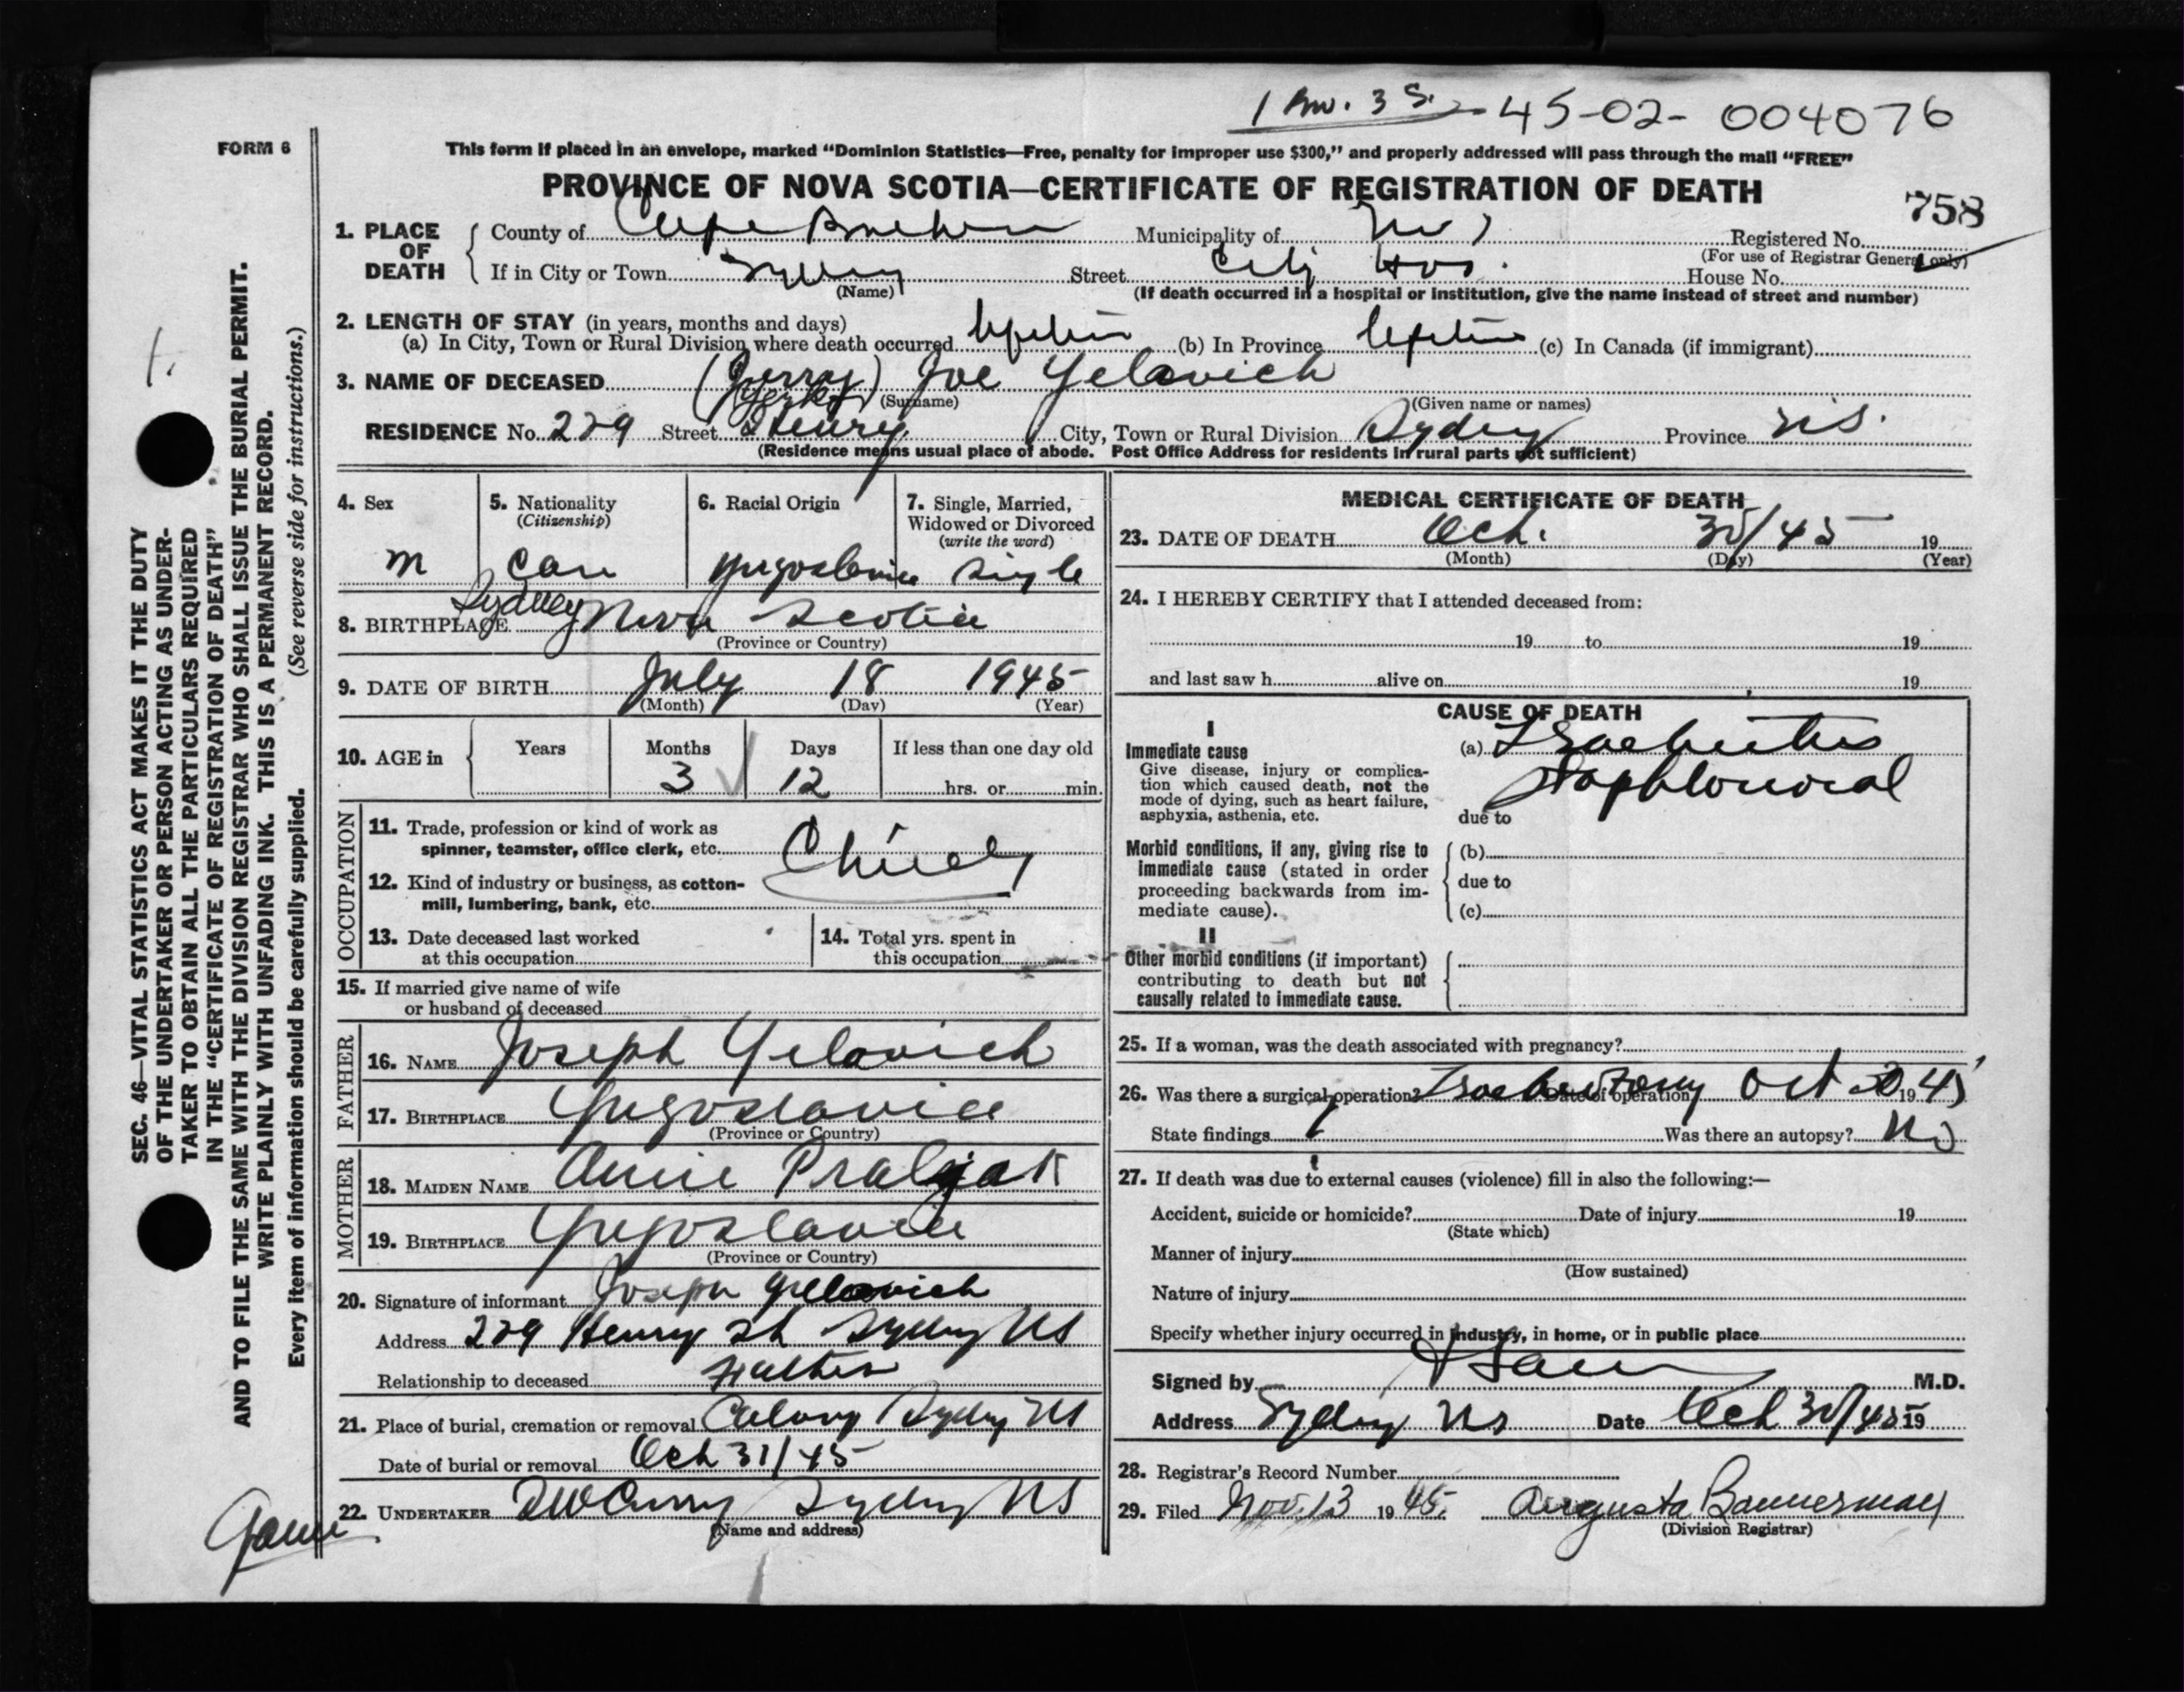 1 Mo. 3 S. 45-02- 004076
FORM 6
This form if placed in an envelope, marked "Dominion Statistics—Free, penalty for improper use $300," and properly addressed will pass through the mail "FREE"
PROVINCE OF NOVA SCOTIA—CERTIFICATE OF REGISTRATION OF DEATH
758
1. PLACE OF DEATH
County of Cape Breton Municipality of Registered No.
(For use of Registrar General only)
If in City or Town Sydney Street City Hos. House No.
(Name) (If death occurred in a hospital or institution, give the name instead of street and number)
2. LENGTH OF STAY (in years, months and days)
(a) In City, Town or Rural Division where death occurred lifetime (b) In Province lifetime (c) In Canada (if immigrant)
3. NAME OF DECEASED (Jerry) Joe Yelavich
(Surname) (Given name or names)
RESIDENCE No. 229 Street Henry City, Town or Rural Division Sydney Province N.S.
(Residence means usual place of abode. Post Office Address for residents in rural parts not sufficient)
4. Sex
m
5. Nationality
(Citizenship)
Can
6. Racial Origin
Yugoslavia
7. Single, Married,
Widowed or Divorced
(write the word)
single
8. BIRTHPLACE Sydney Nova Scotia
(Province or Country)
9. DATE OF BIRTH July 18 1945
(Month) (Day) (Year)
10. AGE in
Years Months Days If less than one day old
3 12 hrs. or min.
OCCUPATION
11. Trade, profession or kind of work as
spinner, teamster, office clerk, etc.
12. Kind of industry or business, as cotton-
mill, lumbering, bank, etc.
13. Date deceased last worked
at this occupation
14. Total yrs. spent in
this occupation
15. If married give name of wife
or husband of deceased
FATHER
16. NAME Joseph Yelavich
17. BIRTHPLACE Yugoslavia
(Province or Country)
MOTHER
18. MAIDEN NAME Annie Praljak
19. BIRTHPLACE Yugoslavia
(Province or Country)
20. Signature of informant Joseph Yelavich
Address 229 Henry St Sydney NS
Relationship to deceased Father
21. Place of burial, cremation or removal Calvary Sydney NS
Date of burial or removal Oct 31/45
22. UNDERTAKER DW Curry Sydney NS
(Name and address)
MEDICAL CERTIFICATE OF DEATH
23. DATE OF DEATH Oct. 30/45 19
(Month) (Day) (Year)
24. I HEREBY CERTIFY that I attended deceased from:
19 to 19
and last saw h alive on 19
CAUSE OF DEATH
I
Immediate cause
Give disease, injury or complica-
tion which caused death, not the
mode of dying, such as heart failure,
asphyxia, asthenia, etc.
(a) Tracheitis
due to
Morbid conditions, if any, giving rise to
immediate cause (stated in order
proceeding backwards from im-
mediate cause).
(b)
due to
(c)
II
Other morbid conditions (if important)
contributing to death but not
causally related to immediate cause.
25. If a woman, was the death associated with pregnancy?
26. Was there a surgical operation? Tracheotomy Date of operation Oct 30 1945
State findings Was there an autopsy? No
27. If death was due to external causes (violence) fill in also the following:—
Accident, suicide or homicide? Date of injury 19
(State which)
Manner of injury
(How sustained)
Nature of injury
Specify whether injury occurred in industry, in home, or in public place
Signed by M.D.
Address Sydney NS Date Oct 30/45 19
28. Registrar's Record Number
29. Filed Nov. 13 1945. Augusta Bannerman
(Division Registrar)
SEC. 46—VITAL STATISTICS ACT MAKES IT THE DUTY
OF THE UNDERTAKER OR PERSON ACTING AS UNDER-
TAKER TO OBTAIN ALL THE PARTICULARS REQUIRED
IN THE "CERTIFICATE OF REGISTRATION OF DEATH"
AND TO FILE THE SAME WITH THE DIVISION REGISTRAR WHO SHALL ISSUE THE BURIAL PERMIT.
WRITE PLAINLY WITH UNFADING INK. THIS IS A PERMANENT RECORD.
Every item of information should be carefully supplied. (See reverse side for instructions.)